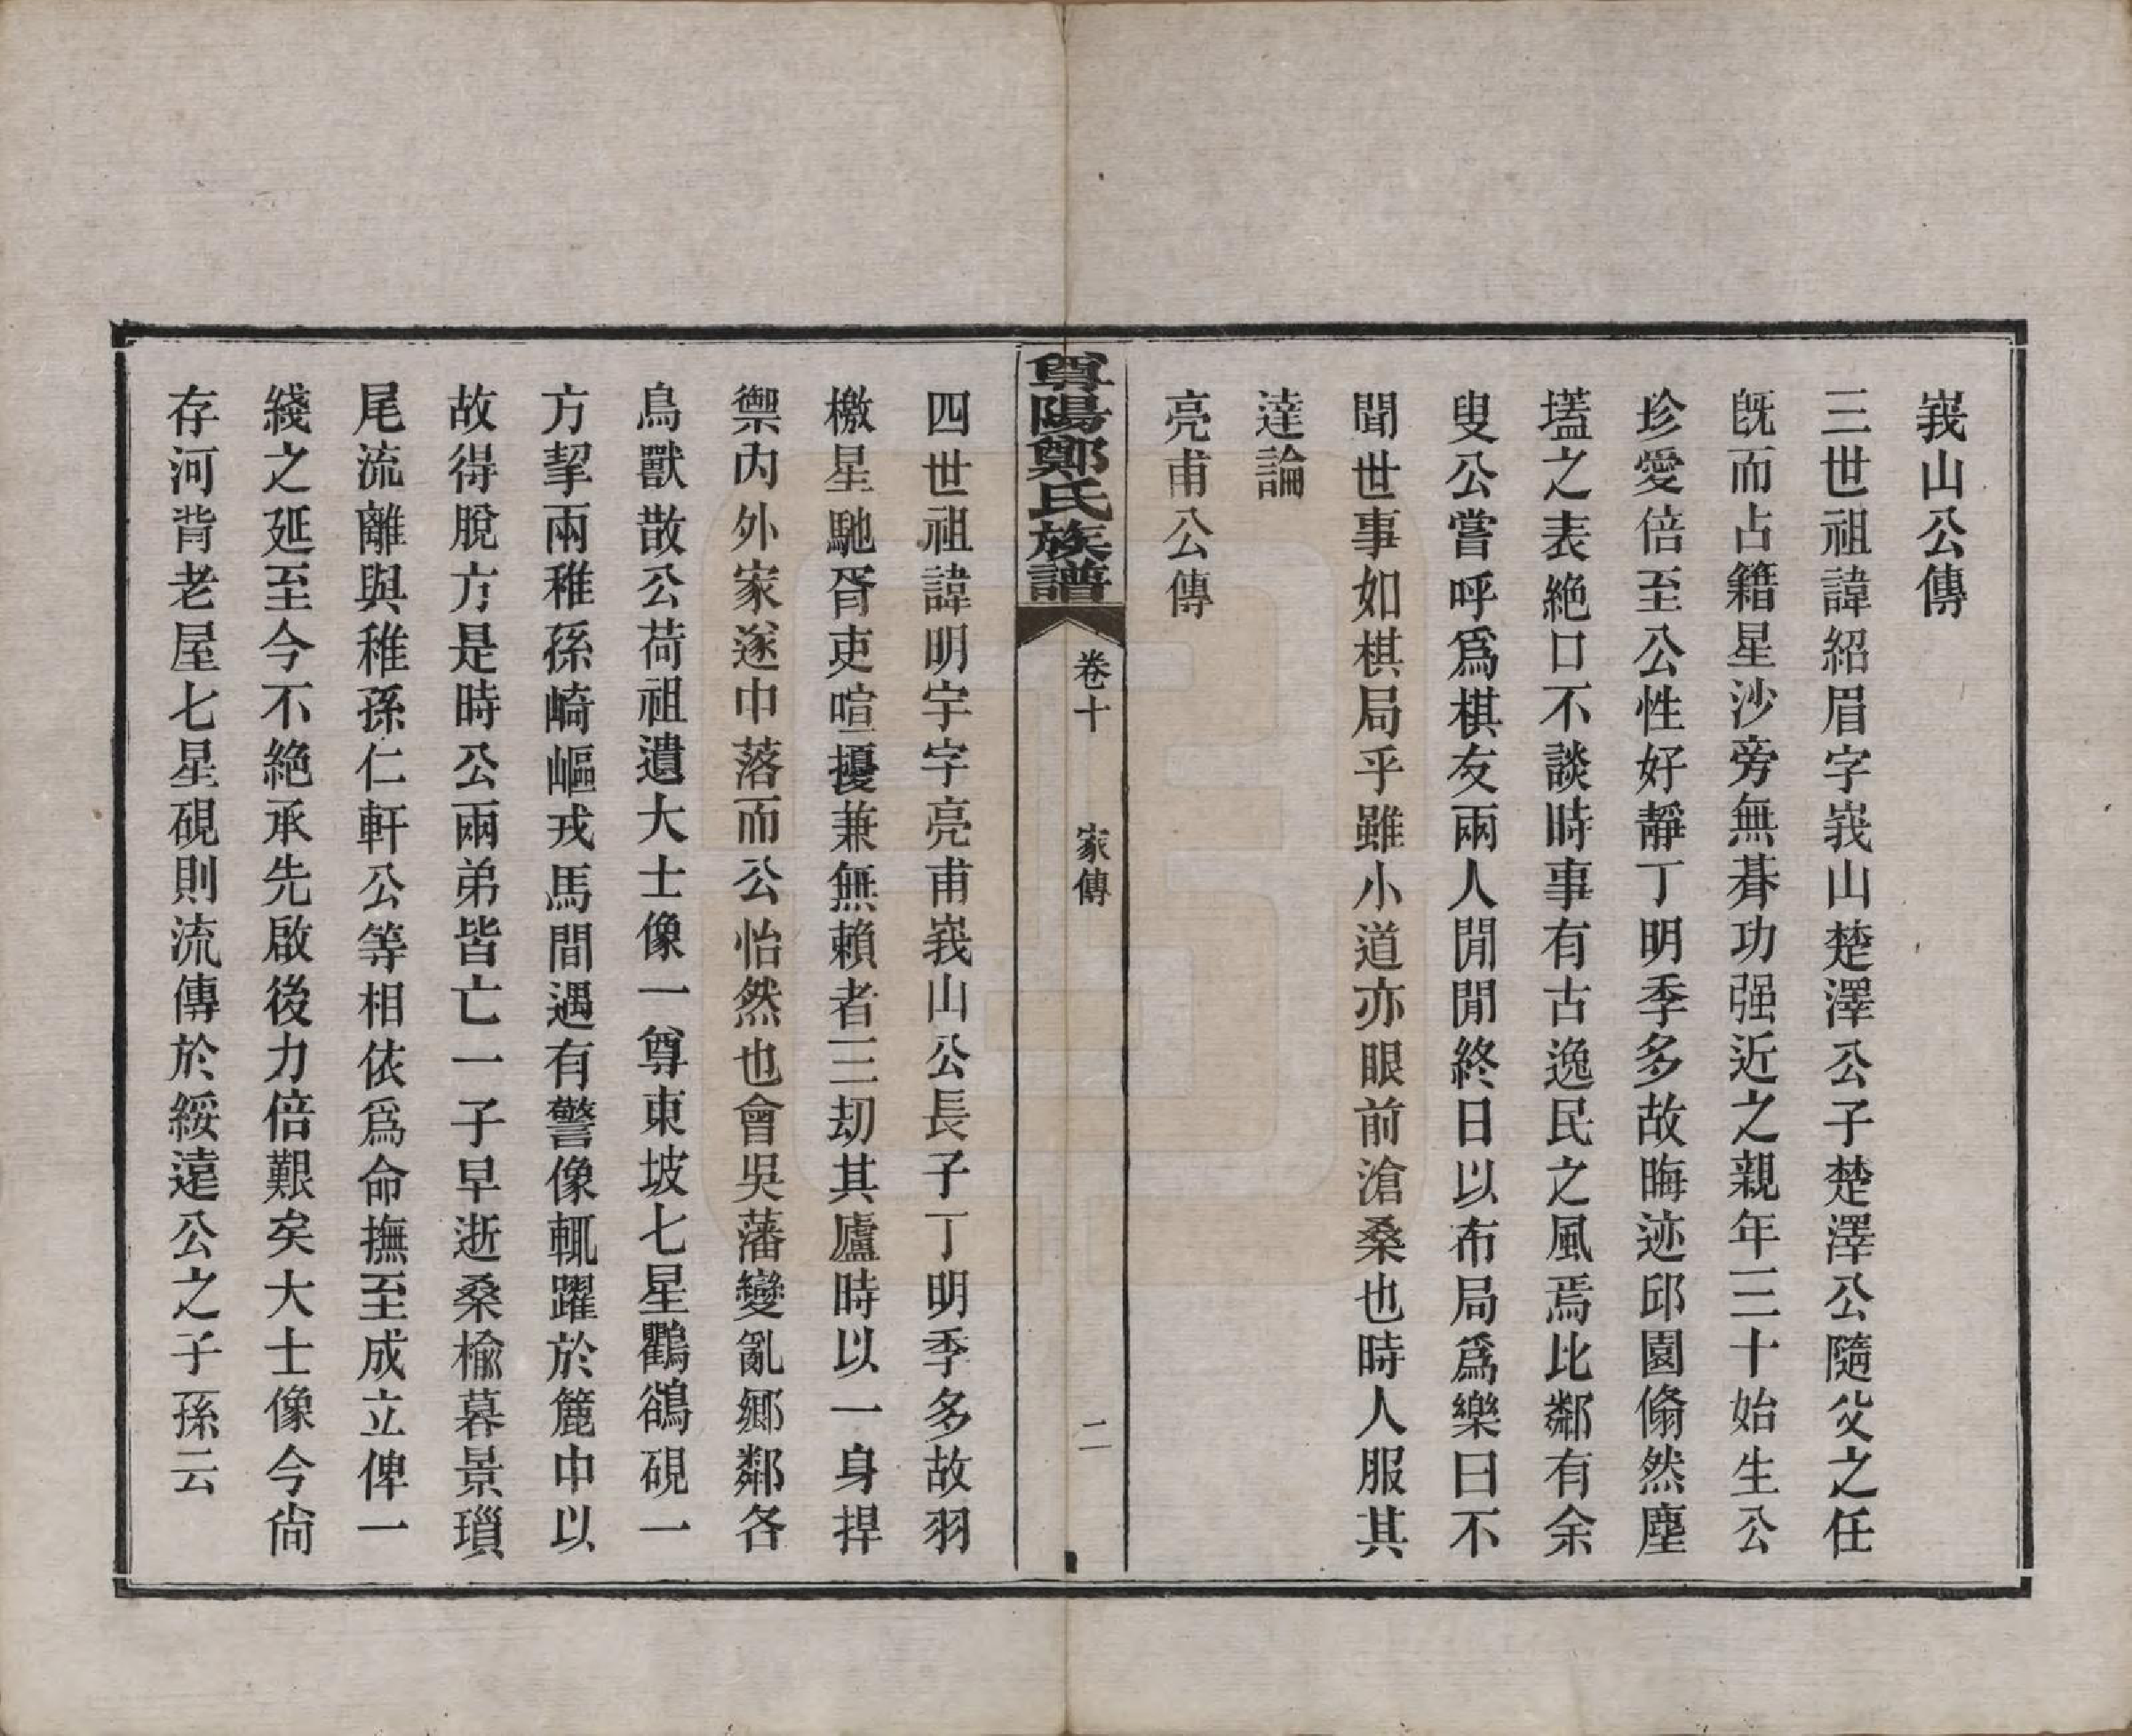 峩山公傳
三世祖諱紹眉字峩山楚澤公子楚澤公隨父之任
旣而占籍星沙旁無朞功强近之親年三十始生公
珍愛倍至公性好靜丁明季多故晦迹邱園翛然塵
壒之表絶口不談時事有古逸民之風焉比鄰有余
叟公嘗呼爲棋友兩人閒閒終日以布局爲樂曰不
聞世事如棋局乎雖小道亦眼前滄桑也時人服其
達論
亮甫公傳
尊陽鄭氏族譜
卷十
家傳
二
四世祖諱明宇字亮甫峩山公長子丁明季多故羽
檄星馳胥吏喧擾兼無賴者三刧其廬時以一身捍
禦內外家遂中落而公怡然也會吳藩變亂鄉鄰各
鳥獸散公荷祖遺大士像一尊東坡七星鸜鵒硯一
方挈兩稚孫崎嶇戎馬間遇有警像輒躍於簏中以
故得脫方是時公兩弟皆亡一子早逝桑楡暮景瑣
尾流離與稚孫仁軒公等相依爲命撫至成立俾一
綫之延至今不絶承先啟後力倍艱矣大士像今尙
存河背老屋七星硯則流傳於綏遠公之子孫云